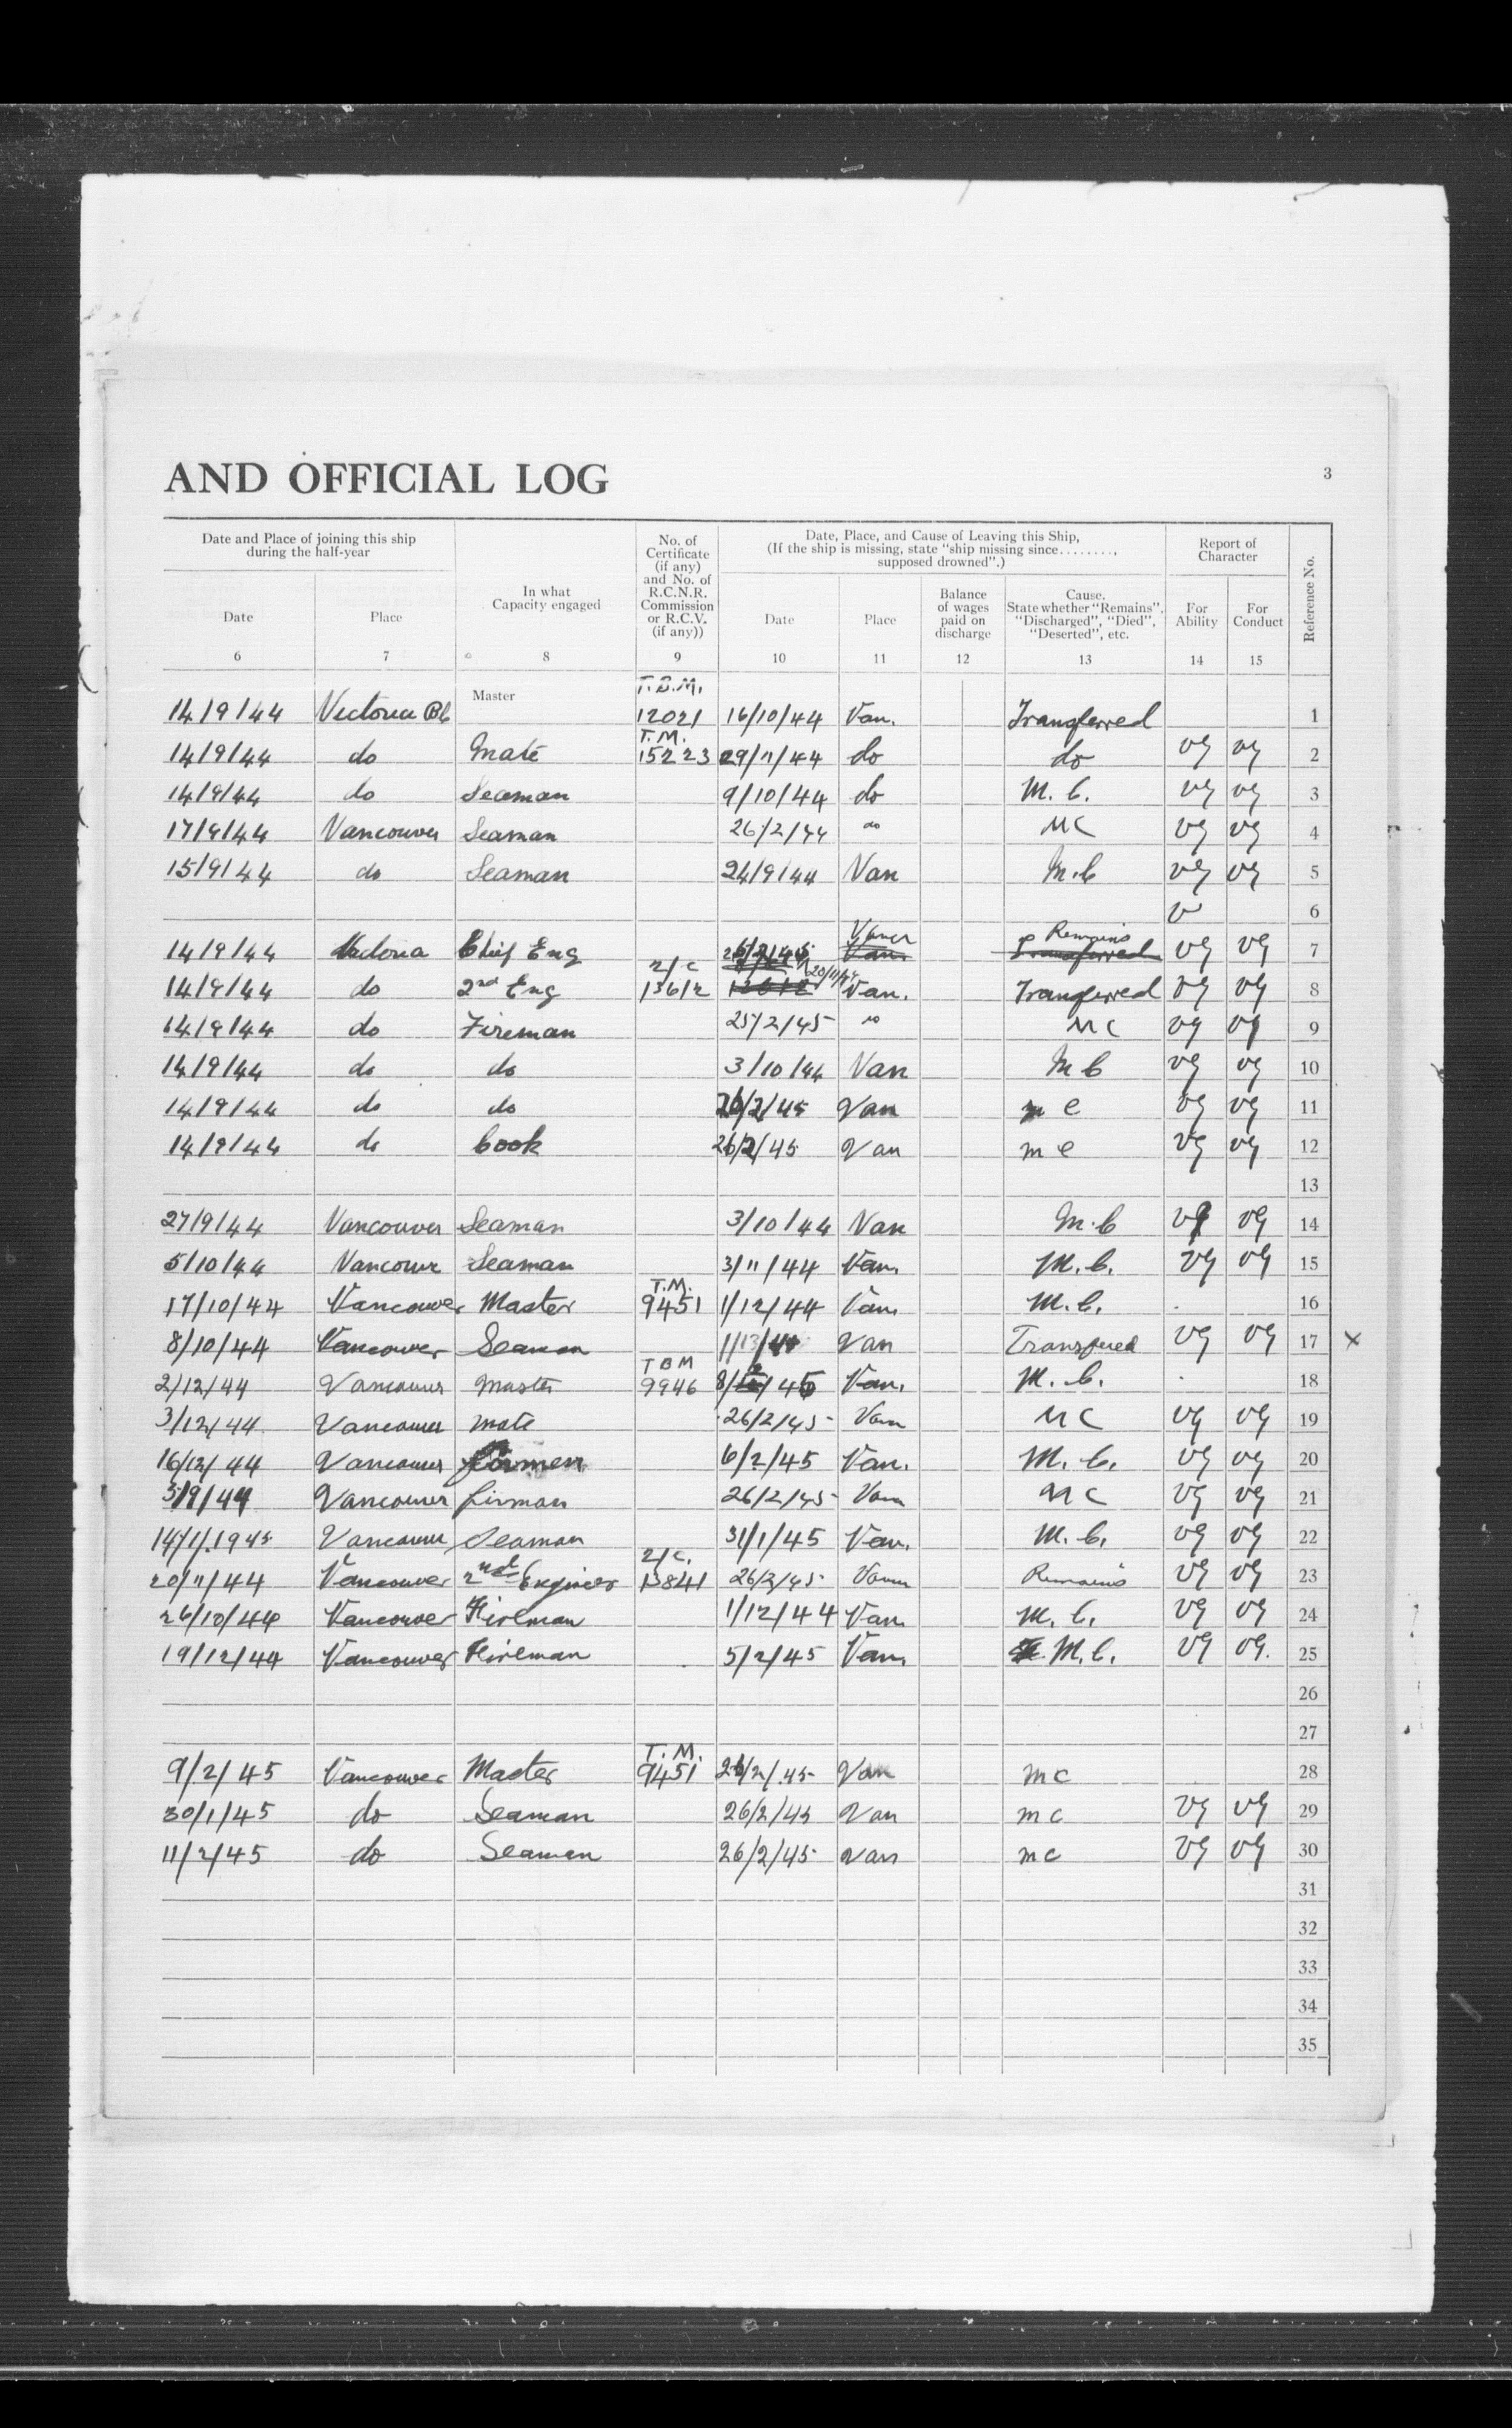 AND OFFICIAL LOG
3
Date and Place of joining this ship
during the half-year
In what
Capacity engaged
No. of
Certificate
(if any)
and No. of
R.C.N.R.
Commission
or R.C.V.
(if any))
Date, Place, and Cause of Leaving this Ship,
(If the ship is missing, state "ship missing since........,
supposed drowned".)
Report of
Character
Reference No.
Date
Place
Date
Place
Balance
of wages
paid on
discharge
Cause.
State whether "Remains",
"Discharged", "Died",
"Deserted", etc.
For
Ability
For
Conduct
6 7 8 9 10 11 12 13 14 15
Master T.B.M.
14/9/44 Victoria BC 12021 16/10/44 Van. Transferred 1
T.M.
14/9/44 do Mate 15223 29/11/44 do do VG VG 2
14/9/44 do Seaman 9/10/44 do M.C. VG VG 3
17/9/44 Vancouver Seaman 26/2/44 do MC VG VG 4
15/9/44 do Seaman 24/9/44 Van M.C VG VG 5
V 6
Vancr Remains
14/9/44 Victoria Chief Eng 26/2/45 Van. Transferred VG VG 7
2/C 20/11/44
14/9/44 do 2nd Eng 13612 Van. Transferred VG VG 8
14/9/44 do Fireman 25/2/45 do MC VG VG 9
14/9/44 do do 3/10/44 Van M C VG VG 10
14/9/44 do do 26/2/45 Van m c VG VG 11
14/9/44 do Cook 26/2/45 Van m c VG VG 12
13
27/9/44 Vancouver Seaman 3/10/44 Van M.C VG VG 14
5/10/44 Vancouver Seaman 3/11/44 Van. M.C. VG VG 15
T.M.
17/10/44 Vancouver Master 9451 1/12/44 Van. M.C. 16
8/10/44 Vancouver Seaman Van Transfered VG VG 17 x
T B M
2/12/44 Vancouver Master 9946 8/2/45 Van. M.C. 18
3/12/44 Vancouver Mate 26/2/45 Van MC VG VG 19
16/12/44 Vancouver firmen 6/2/45 Van. M.C. VG VG 20
5/9/44 Vancouver firman 26/2/45 Van MC VG VG 21
14/1/1945 Vancouver Seaman 31/1/45 Van. M.C. VG VG 22
2/C.
20/11/44 Vancouver 2nd Engineer 13841 26/2/45 Vancr Remains VG VG 23
26/10/44 Vancouver Fireman 1/12/44 Van. M.C. VG VG 24
19/12/44 Vancouver Fireman 5/2/45 Van. M.C. VG VG. 25
26
27
T.M.
9/2/45 Vancouver Master 9451 26/2/45 Van mc 28
30/1/45 do Seaman 26/2/45 Van mc VG VG 29
11/2/45 do Seaman 26/2/45 Van mc VG VG 30
31
32
33
34
35